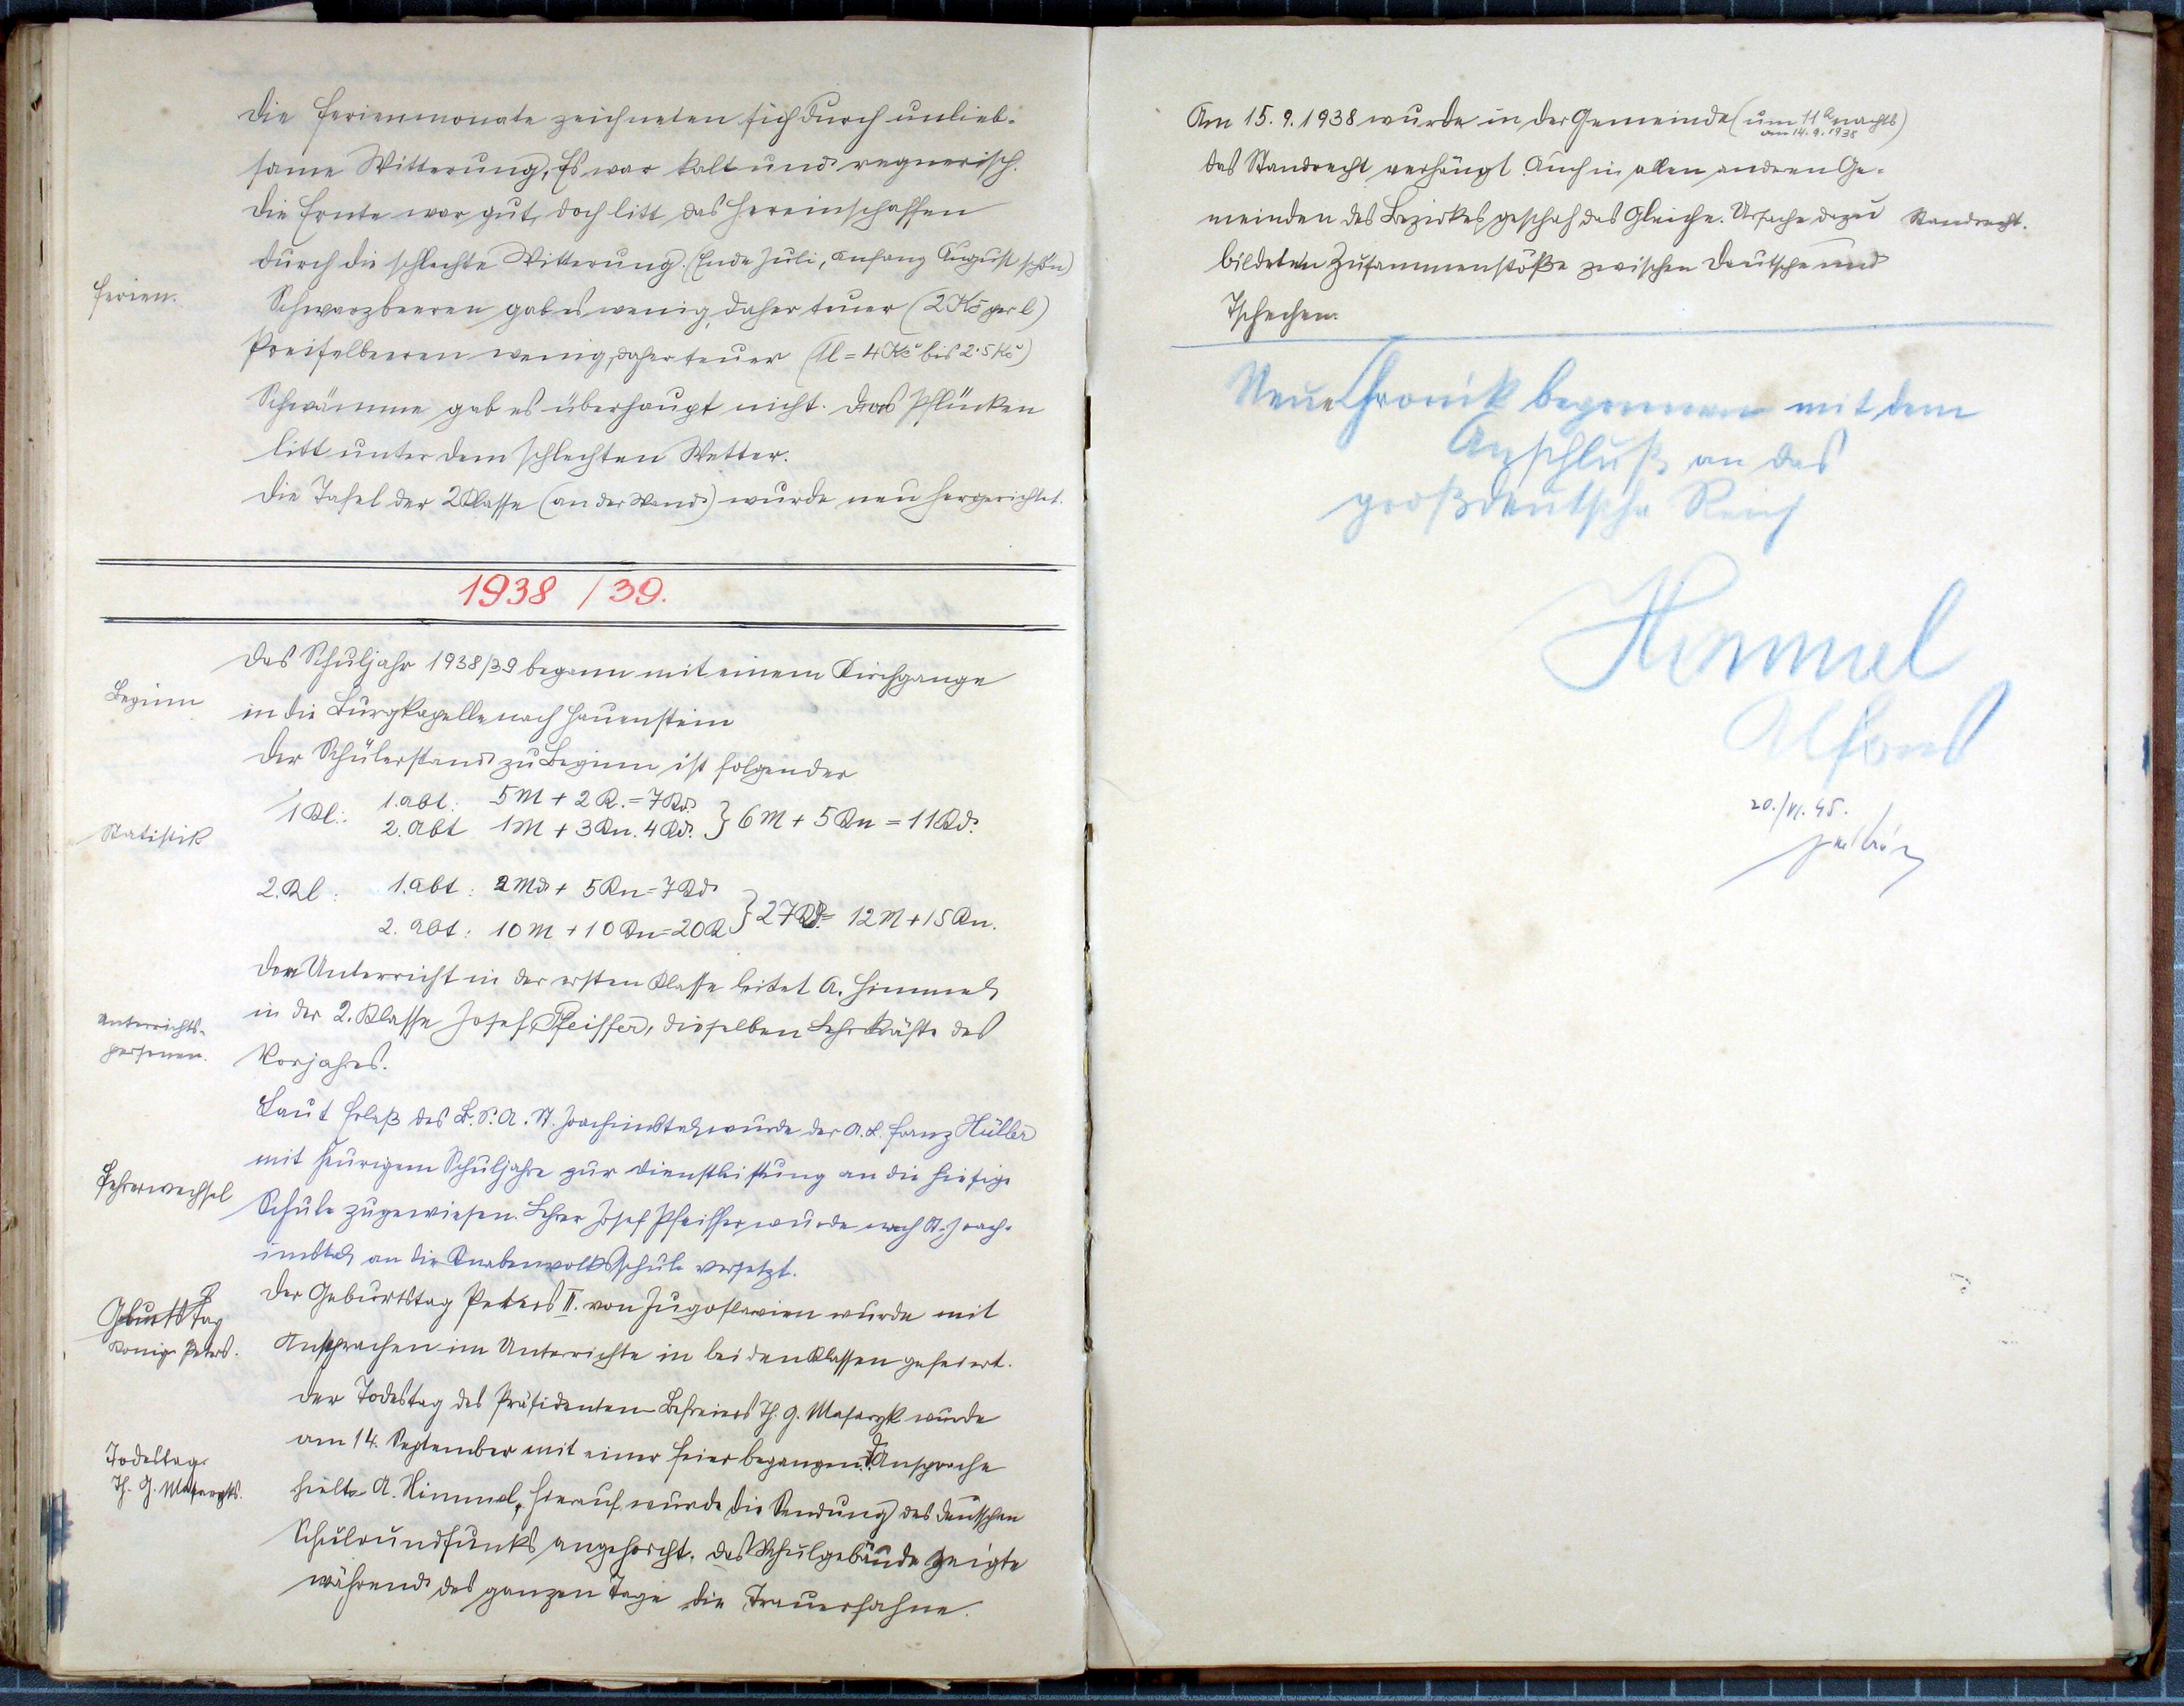 Die Ferienmonate zeichneten sich durch unlieb-
same Witterung. Es war kalt und regnerisch.
Die Ernte war gut, doch litt das Hereinschaffen
durch die schlechte Witterung. (Ende Juli, Anfang August schön)
Ferien.
Schwarzbeeren gab es wenig, daher teuer (2 Kč per l)
Preiselbeeren wenig, daher teuer (1l = 4 Kč bis 2·5 Kč)
Schwämme gab es überhaupt nicht. Das Pflücken
litt unter dem schlechten Wetter.
Die Tafel der 2. Klasse (an der Wand) wurde neu hergerichtet.
1938 / 39.
Das Schuljahr 1938/39 begann mit einem Kirchgange
Beginn
in die Burgkapelle nach Hauenstein
Der Schülerstand zu Beginn ist folgender
Statistik
1 Kl.: 1. Abt: 5 M + 2 K. = 7 Kd.
2. Abt 1 M + 3 Kn. 4 Kd. } 6 M + 5 Kn = 11 Kd.
2. Kl: 1. Abt: 2 Md + 5 Kn = 7 Kd
2. Abt: 10 M + 10 Kn = 20 K } 27 Kd = 12 M + 15 Kn.
Den Unterricht in der ersten Klasse leitet A. Himmel
in der 2. Klasse Josef Pfeiffer, dieselben Lehrkräfte des
Unterrichts-
personen.
Vorjahres.
Laut Erlaß des B. S. A. St. Joachimstal wurde der A. L. Franz Hüller
mit heurigem Schuljahre zur Dienstleistung an die hiesige
Lehrerwechsel
Schule zugewiesen. Lehrer Josef Pfeiffer wurde nach St. Joach-
imstal an die Knabenvolksschule versetzt.
Der Geburtstag Peters II. von Jugoslavien wurde mit
Geburtstag
König Peters.
Ansprachen im Unterrichte in beiden Klassen gefeiert.
Der Todestag des Präsidenten-Befreiers Th. G. Masaryk wurde
am 14. September mit einer Feier begangen. D. Ansprache
Todestag
Th. G. Masaryks.
hielt A. Himmel, hierauf wurde die Sendung des deutschen
Schulrundfunks angehorcht. Das Schulgebäude zeigte
während des ganzen Tage die Trauerfahne.
Am 15. 9. 1938 wurde in der Gemeinde (um 11h nachts)
am 14. 9. 1938
das Standrecht verhängt. Auch in allen andren Ge-
meinden des Bezirkes geschah das Gleiche. Ursache dazu
Standrecht.
bildeten Zusammenstöße zwischen Deutsche und
Tschechen.
Neue Chronik begonnen mit dem
Anschluß an das
großdeutsche Reich
Himmel
Alfons
20./VI. 45.